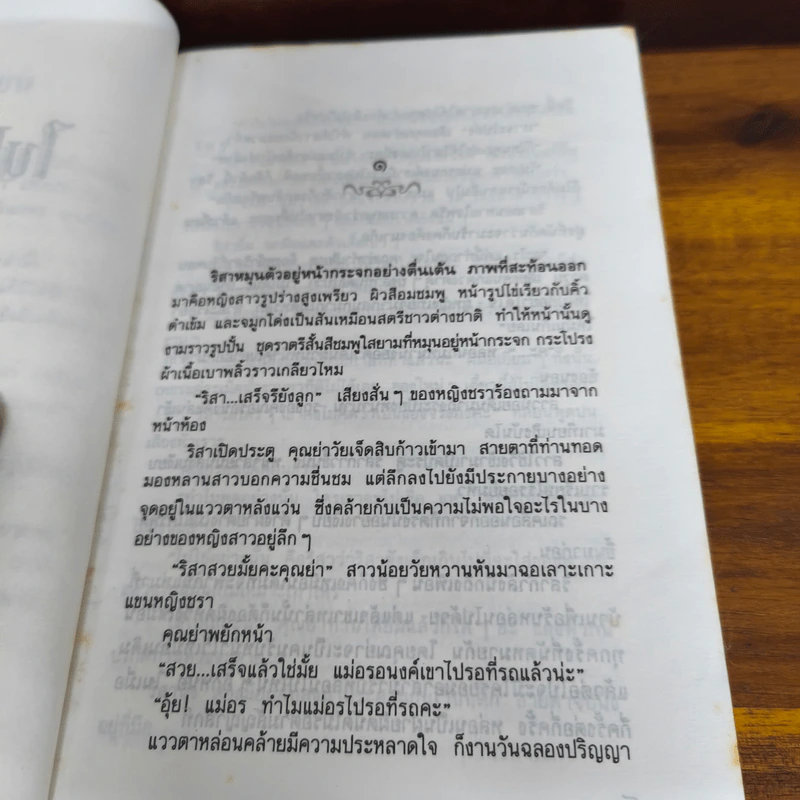 ๑
ริสาหมุนตัวอยู่หน้ากระจกอย่างตื่นเต้น ภาพที่สะท้อนออก
มาคือหญิงสาวรูปร่างสูงเพรียว ผิวสีอมชมพู หน้ารูปไข่เรียวกับคิ้ว
ดำเข้ม และจมูกโด่งเป็นสันเหมือนสตรีชาวต่างชาติ ทำให้หน้านั้นดู
งามราวรูปปั้น ชุดราตรีสั้นสีชมพูใสยามที่หมุนอยู่หน้ากระจก กระโปรง
ผ้าเนื้อเบาพลิ้วราวเกลียวไหม
“ริสา...เสร็จรึยังลูก” เสียงสั่นๆ ของหญิงชราร้องถามมาจาก
หน้าห้อง
ริสาเปิดประตู คุณย่าวัยเจ็ดสิบก้าวเข้ามา สายตาที่ท่านทอด
มองหลานสาวบอกความชื่นชม แต่ลึกลงไปยังมีประกายบางอย่าง
จุดอยู่ในแววตาหลังแว่น ซึ่งคล้ายกับเป็นความไม่พอใจอะไรในบาง
อย่างของหญิงสาวอยู่ลึกๆ
“ริสาสวยมั้ยคะคุณย่า” สาวน้อยวัยหวานหันมาฉอเลาะเกาะ
แขนหญิงชรา
คุณย่าพยักหน้า
“สวย...เสร็จแล้วใช่มั้ย แม่อรอนงค์เขาไปรอที่รถแล้วน่ะ”
“อุ้ย! แม่อร ทำไมแม่อรไปรอที่รถคะ”
แววตาหล่อนคล้ายมีความประหลาดใจ ก็งานวันฉลองปริญญา